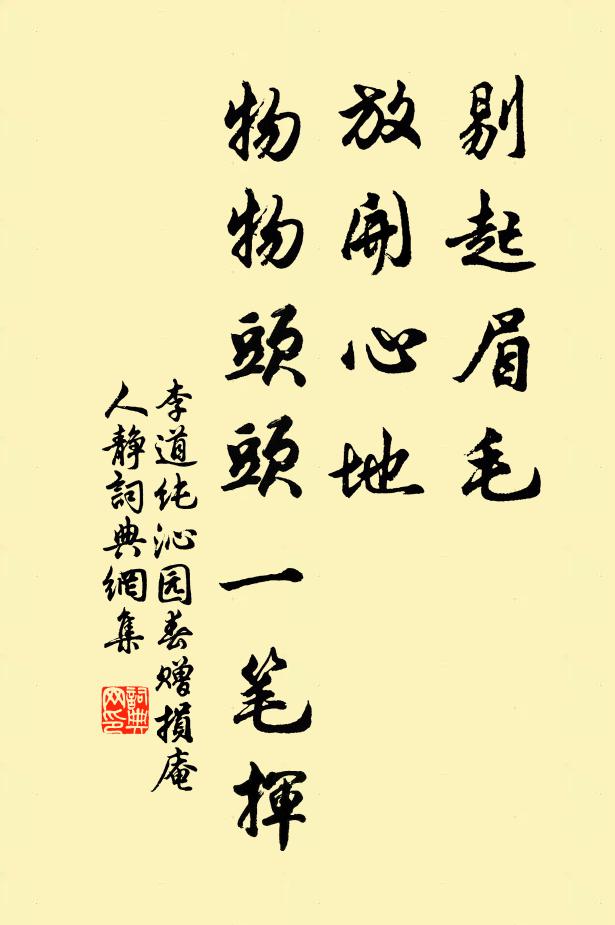 剔起眉毛
放開心地
物物頭頭一笔揮
李道纯沁园春赠損庵
人静詞典網集
詞典网印